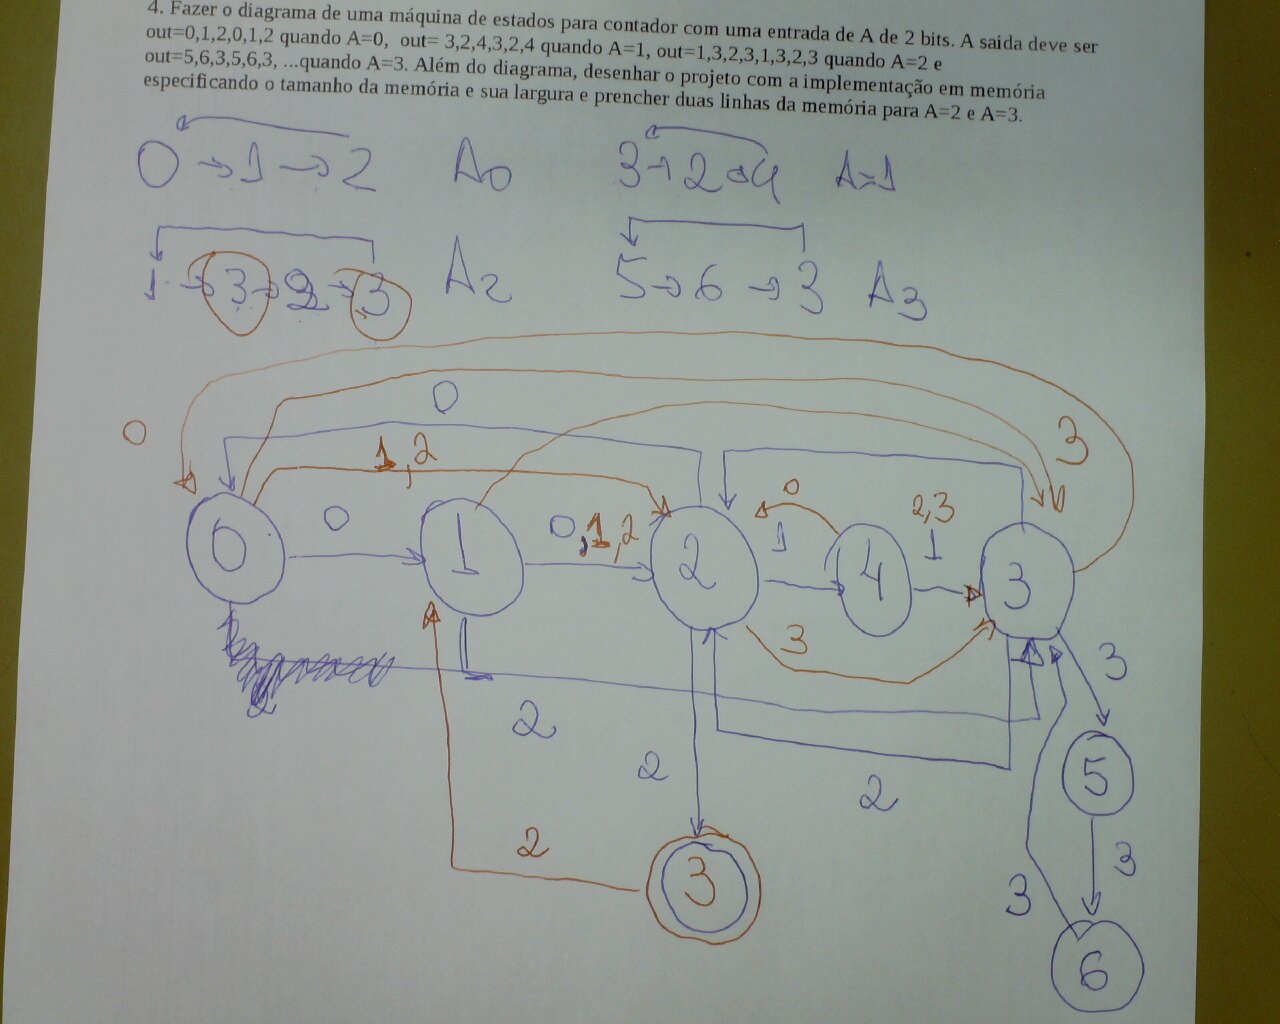 4. Fazer o diagrama de uma máquina de estados para contador com uma entrada de A de 2 bits. A saida deve ser
out=0,1,2,0,1,2 quando A=0, out= 3,2,4,3,2,4 quando A=1, out=1,3,2,3,1,3,2,3 quando A=2 e
out=5,6,3,5,6,3, ...quando A=3. Além do diagrama, desenhar o projeto com a implementação em memória
especificando o tamanho da memória e sua largura e prencher duas linhas da memória para A=2 e A=3.
0 → 1 → 2 A0 3 → 2 → 4 A=1
1 → 3 → 2 → 3 A2 5 → 6 → 3 A3
0
0
1,2
3
0
0,1,2
0
1
2,3
1
0
1
2
4
3
3
3
2
2
2
2
2
5
3
3
3
6